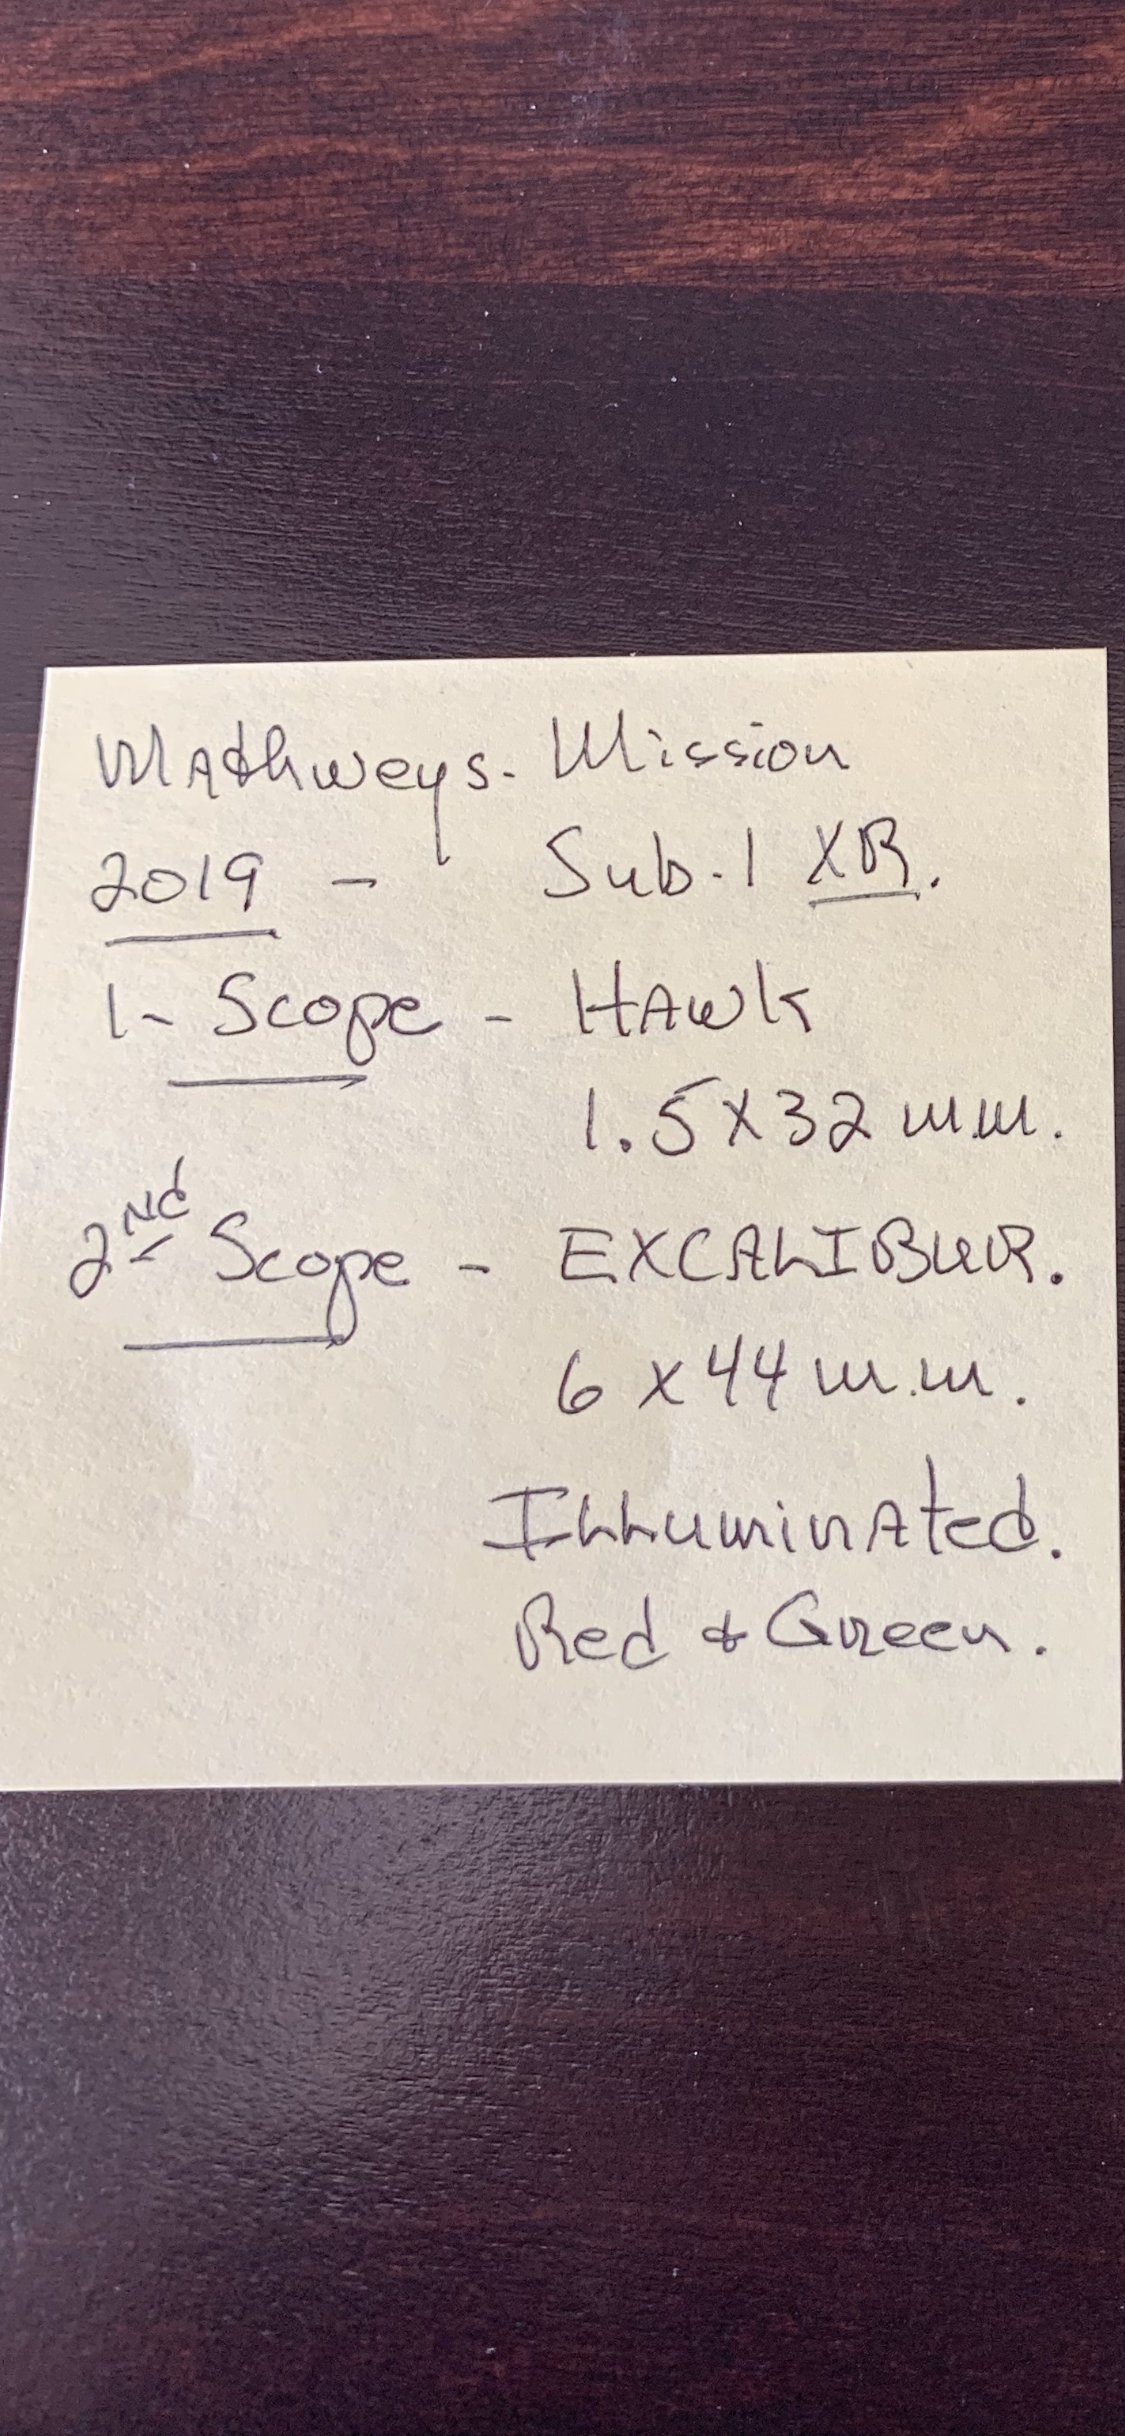 Mathweys. Mission
2019 - Sub.1 XR.
1- Scope - HAWK
1.5X32 m.m.
2nd Scope - EXCALIBUR.
6 x 44 m.m.
Illuminated.
Red & Green.